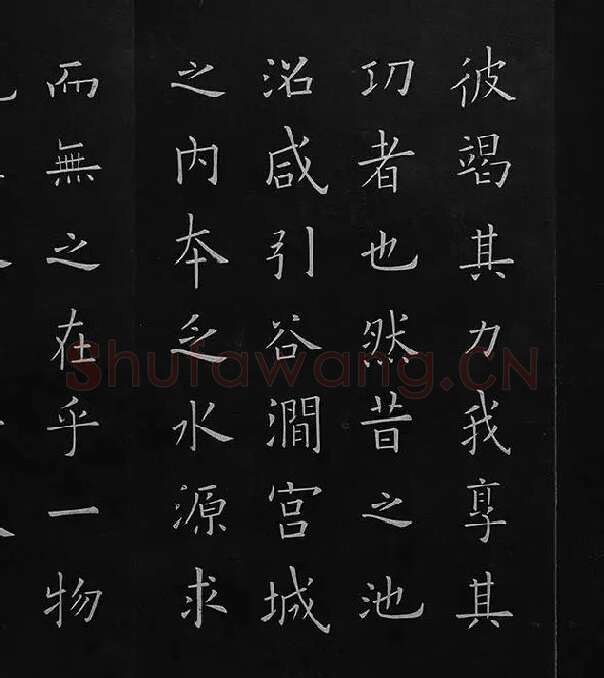 彼竭其力我享其
功者也然昔之池
沼咸引谷澗宮城
之内本乏水源求
而無之在乎一物
Shufawang.CN